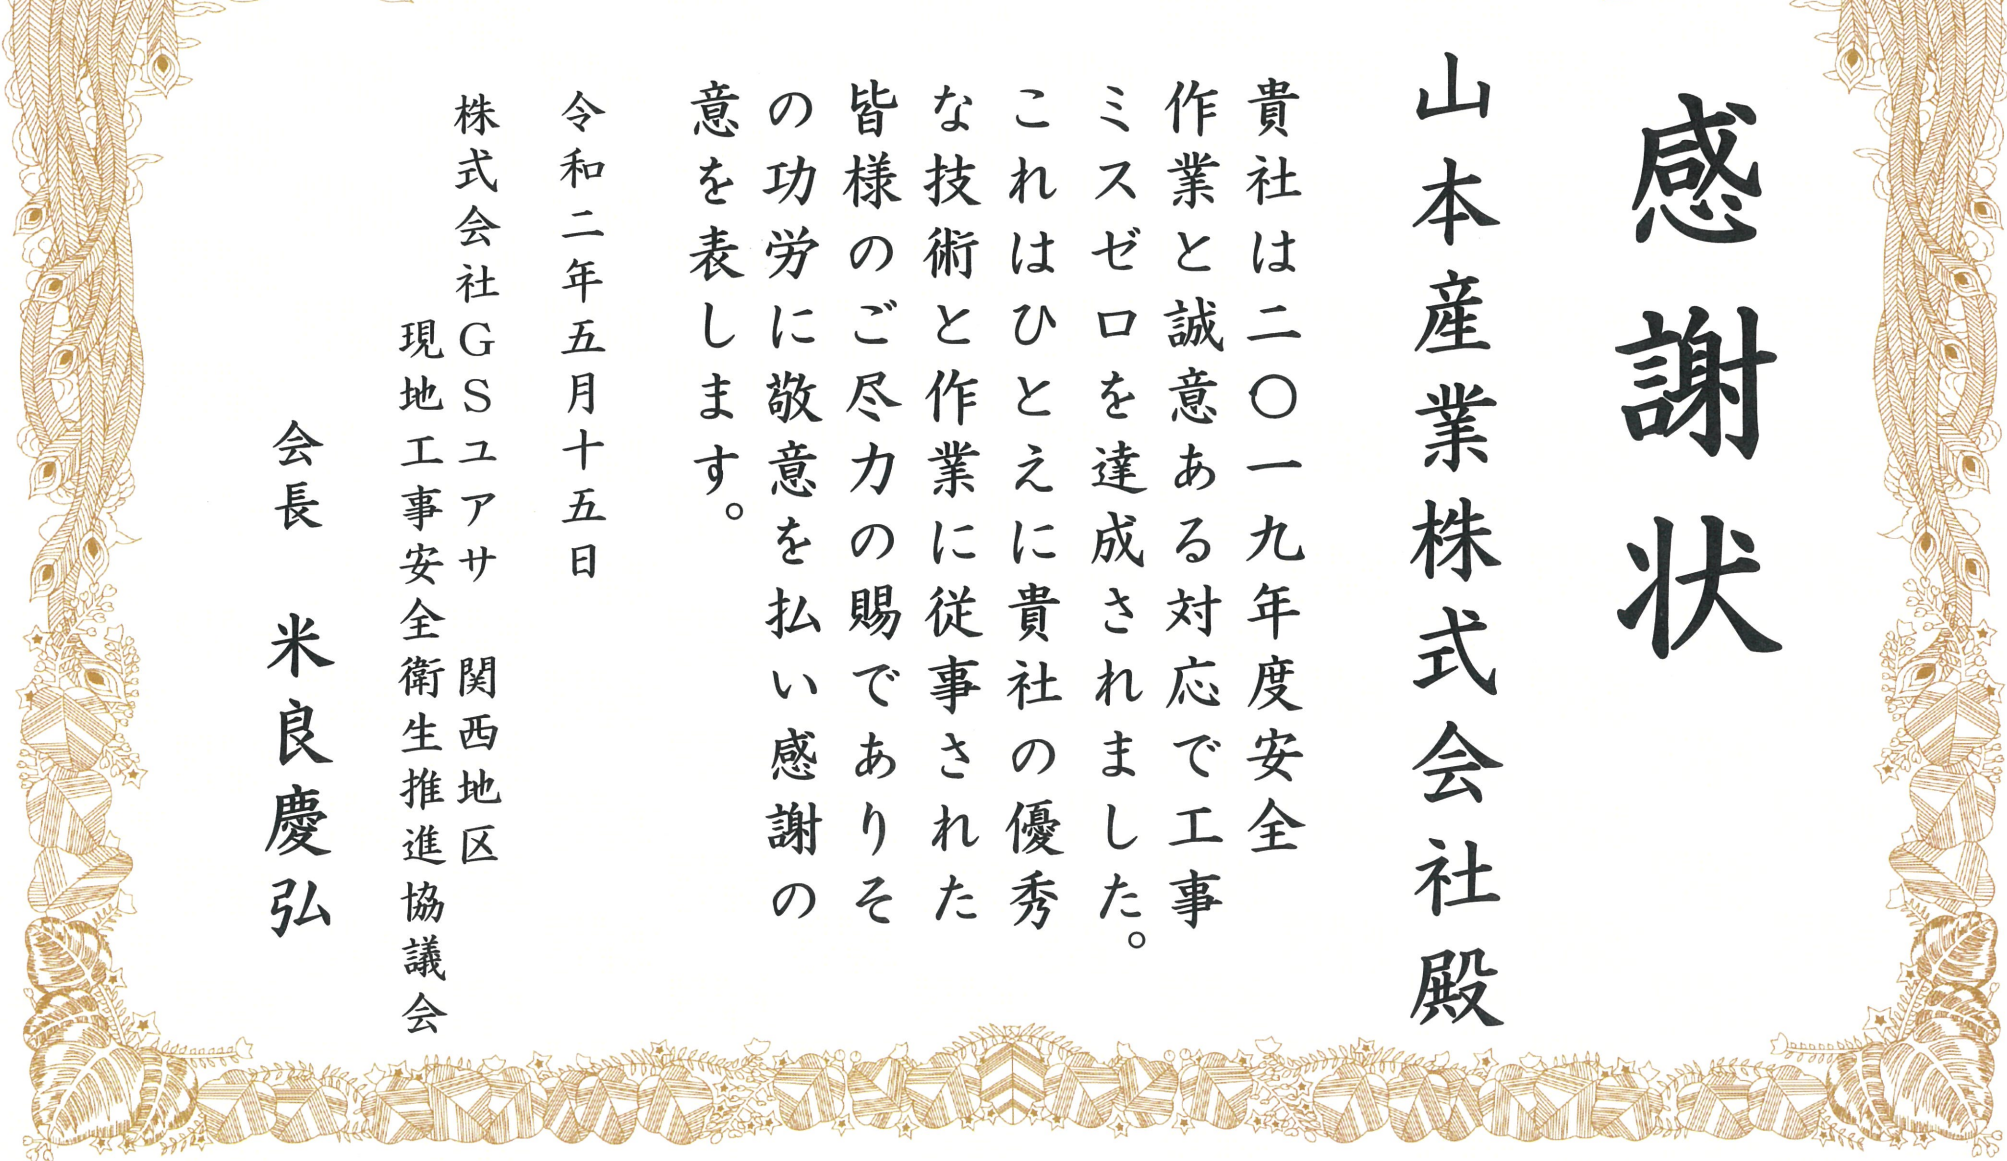 感謝状
山本産業株式会社殿
貴社は二〇一九年度安全
作業と誠意ある対応で工事
ミスゼロを達成されました。
これはひとえに貴社の優秀
な技術と作業に従事された
皆様のご尽力の賜でありそ
の功労に敬意を払い感謝の
意を表します。
令和二年五月十五日
株式会社GSユアサ　関西地区
現地工事安全衛生推進協議会
会長　米良慶弘